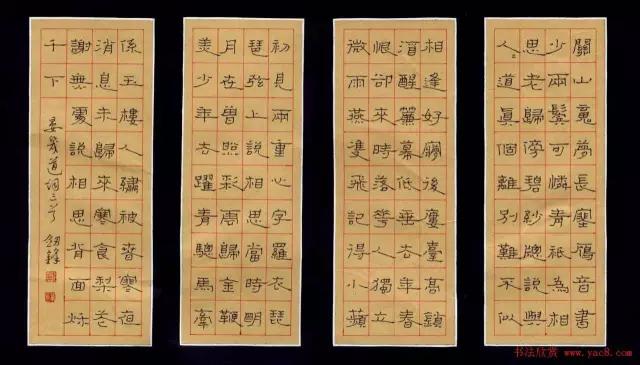 關山魂夢長塞鴈音書
少兩鬢可憐青祇為相
思老歸傍碧紗窗說與
人〻道真個離別難不似
相逢好夢後樓臺高鎖
酒醒簾幕低垂去年春
恨卻來時落花人獨立
微雨燕雙飛記得小蘋
初見兩重心字羅衣琵
琶弦上說相思當時明
月在曾照彩雲歸金鞭
美少年去躍青驄馬牽
係玉樓人繡被春寒夜
消息未歸來寒食梨花
謝無處說相思背面秋
千下
晏幾道詞三首
书法欣赏 www.yac8.com